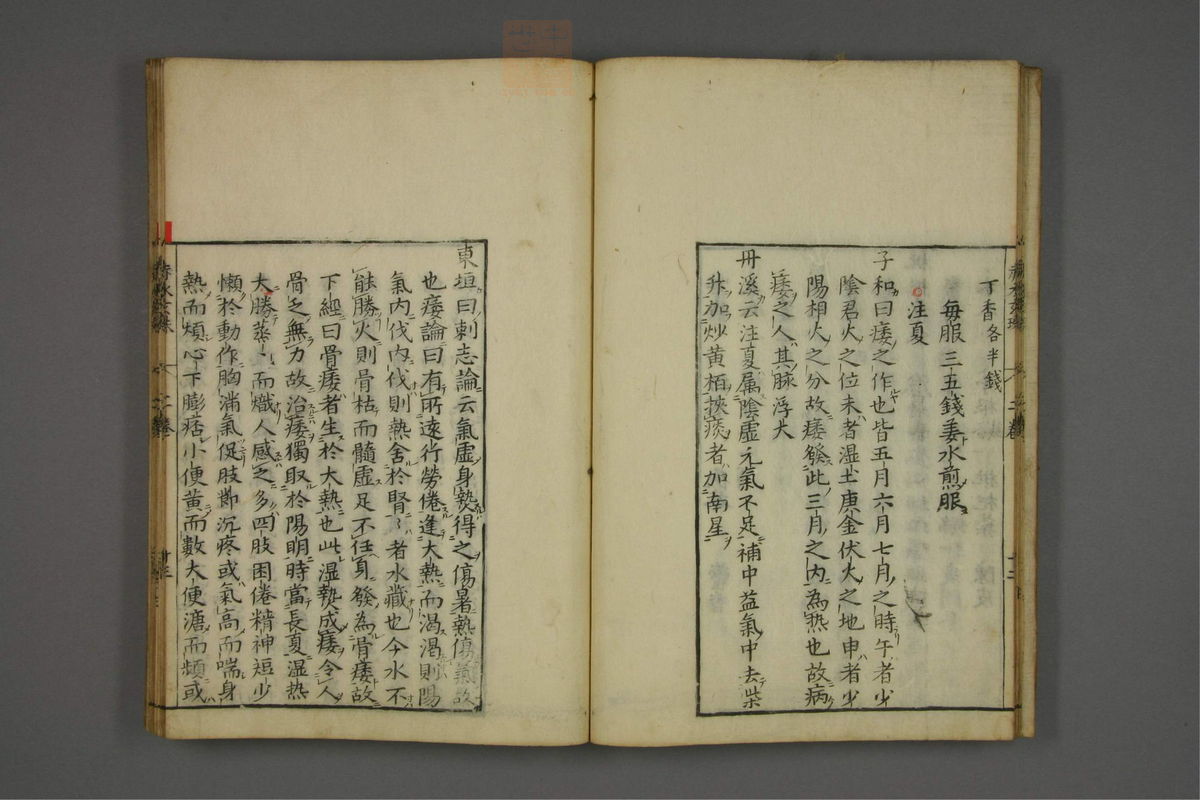 丁香各半錢
毎服三五錢姜水煎服
注夏
子和曰痿之作也皆五月六月七月之時午者少
陰君火之位未者湿土庚金伏火之地申者少
陽相火之分故痿發此三月之内為热也故病
痿之人其脉浮大
丹溪云注夏属陰虚元氣不足補中益氣中去柴
升加炒黄栢挾痰者加南星
二卷
東垣曰刺志論云氣虚身熱得之傷暑熱傷氣故
也痿論曰有所遠行勞倦逢大熱而渴渴則陽
氣内伐内伐則熱舍於腎〻者水藏也今水不
能勝火則骨枯而髓虚足不任身發為骨痿故
下經曰骨痿者生於大熱也此湿熱成痿令人
骨乏無力故治痿獨取於陽明時當長夏湿热
大勝蒸〻而熾人感之多四肢困倦精神短少
懶於動作胸滿氣促肢節沉疼或氣高而喘身
熱而煩心下膨痞小便黄而數大便溏而頻或
二卷
十三